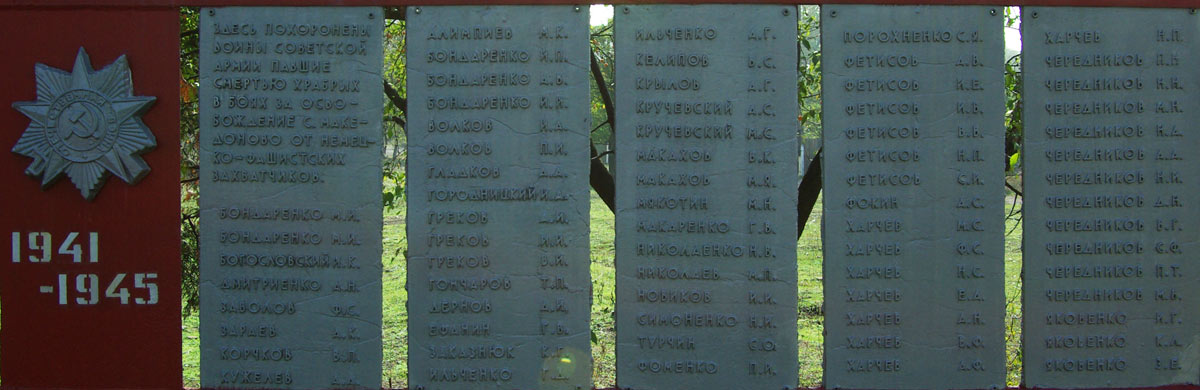 1941
-1945
ЗДЕСЬ ПОХОРОНЕНЫ
ВОИНЫ СОВЕТСКОЙ
АРМИИ ПАВШИЕ
СМЕРТЬЮ ХРАБРЫХ
В БОЯХ ЗА ОСВО-
БОЖДЕНИЕ С. МАКЕ-
ДОНОВО ОТ НЕМЕЦ-
КО-ФАШИСТСКИХ
ЗАХВАТЧИКОВ.
БОНДАРЕНКО М.И.
БОНДАРЕНКО М.И.
БОГОСЛОВСКИЙ М.К.
ДМИТРИЕНКО А.Н.
ЗАВОЛОВ Ф.С.
ЗАРАЕВ А.К.
КОРЧКОВ В.П.
КУЖЕЛЕВ
АЛИМПИЕВ М.К.
БОНДАРЕНКО И.П.
БОНДАРЕНКО А.В.
БОНДАРЕНКО И.И.
ВОЛКОВ И.А.
ВОЛКОВ П.И.
ГЛАДКОВ
ГОРОДНИЦКИЙ И.А.
ГРЕКОВ А.И.
ГРЕКОВ И.И.
ГРЕКОВ В.И.
ГОНЧАРОВ Т.П.
ДЕРНОВ А.И.
ЕФАНИН Г.В.
ЗАКАЗНЮК
ИЛЬЧЕНКО
ИЛЬЧЕНКО А.Г.
КЕЛИПОВ В.С.
КРЫЛОВ А.Г.
КРУЧЕВСКИЙ А.С.
КРУЧЕВСКИЙ М.С.
МАКАХОВ В.К.
МАКАХОВ М.Я.
МЯКОТИН М.Н.
МАКАРЕНКО Г.В.
НИКОЛАЕНКО Н.В.
НИКОЛАЕВ М.П.
НОВИКОВ И.И.
СИМОНЕНКО Н.И.
ТУРЧИН
ФОМЕНКО П.И.
ПОРОХНЕНКО С.И.
ФЕТИСОВ А.В.
ФЕТИСОВ И.Е.
ФЕТИСОВ И.В.
ФЕТИСОВ В.В.
ФЕТИСОВ Н.П.
ФЕТИСОВ С.И.
ФОКИН А.С.
ХАРЧЕВ М.С.
ХАРЧЕВ Ф.С.
ХАРЧЕВ Н.С.
ХАРЧЕВ Е.Д.
ХАРЧЕВ А.Н.
ХАРЧЕВ В.Ф.
ХАРЧЕВ А.Ф.
ХАРЧЕВ Н.П.
ЧЕРЕДНИКОВ
ЧЕРЕДНИКОВ Н.Н.
ЧЕРЕДНИКОВ М.Н.
ЧЕРЕДНИКОВ Н.Д.
ЧЕРЕДНИКОВ
ЧЕРЕДНИКОВ Н.И.
ЧЕРЕДНИКОВ
ЧЕРЕДНИКОВ В.Г.
ЧЕРЕДНИКОВ С.Ф.
ЧЕРЕДНИКОВ П.Т.
ЧЕРЕДНИКОВ М.В.
ЯКОВЕНКО И.Г.
ЯКОВЕНКО К.Л.
ЯКОВЕНКО З.Е.